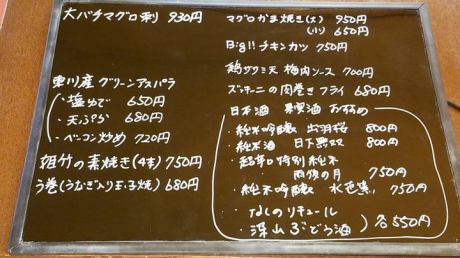 大バチマグロ刺 930円
東川産 グリーンアスパラ
・塩ゆで 650円
・天ぷら 680円
・ベーコン炒め 720円
姫竹の素焼き(4本) 750円
う巻(うなぎ入り玉子焼) 680円
マグロかま焼き(大) 950円
(小) 650
Big!! チキンカツ 750円
鶏ササミ天 梅肉ソース 700円
ズッキーニの肉巻きフライ 680円
日本酒 果実酒 おすすめ
・純米吟醸 出羽桜 800円
・純米酒 日下無双 800円
・超辛口特別純米
雨後の月 750円
・純米吟醸 水芭蕉 750円
・なしのリキュール
・深山ぶどう酒 各550円